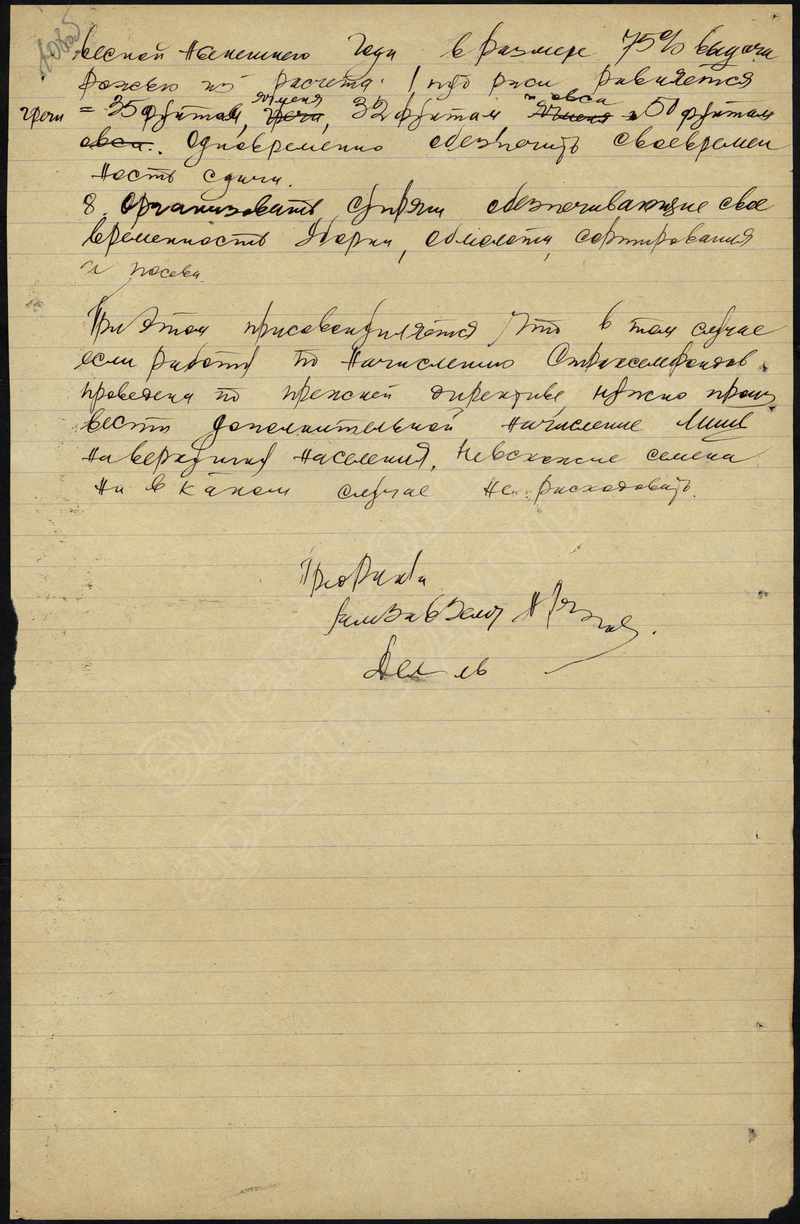 весной нынешнего года в размере 75% выдачи
рожью из расчета: 1 пуд ржи равняется
гречи = 35 фунтам, ячменя греча, 32 фунтам и овса ячменя в 50 фунтам
овса. Одновременно обезпечить своевремен
ность сдачи.
8. Организовать супряги обезпечивающие свое
временность уборки, обмолота, сортирования
и посева.
При этом присовокупляется, что в том случае
если работы по начислению Страхсемфондов
проведена по прежней директиве, нужно произ
вести дополнительной начисление лишь
на верхушку населения. Невсхожие семена
ни в каком случае не расходовать.
Предрика
Делпр